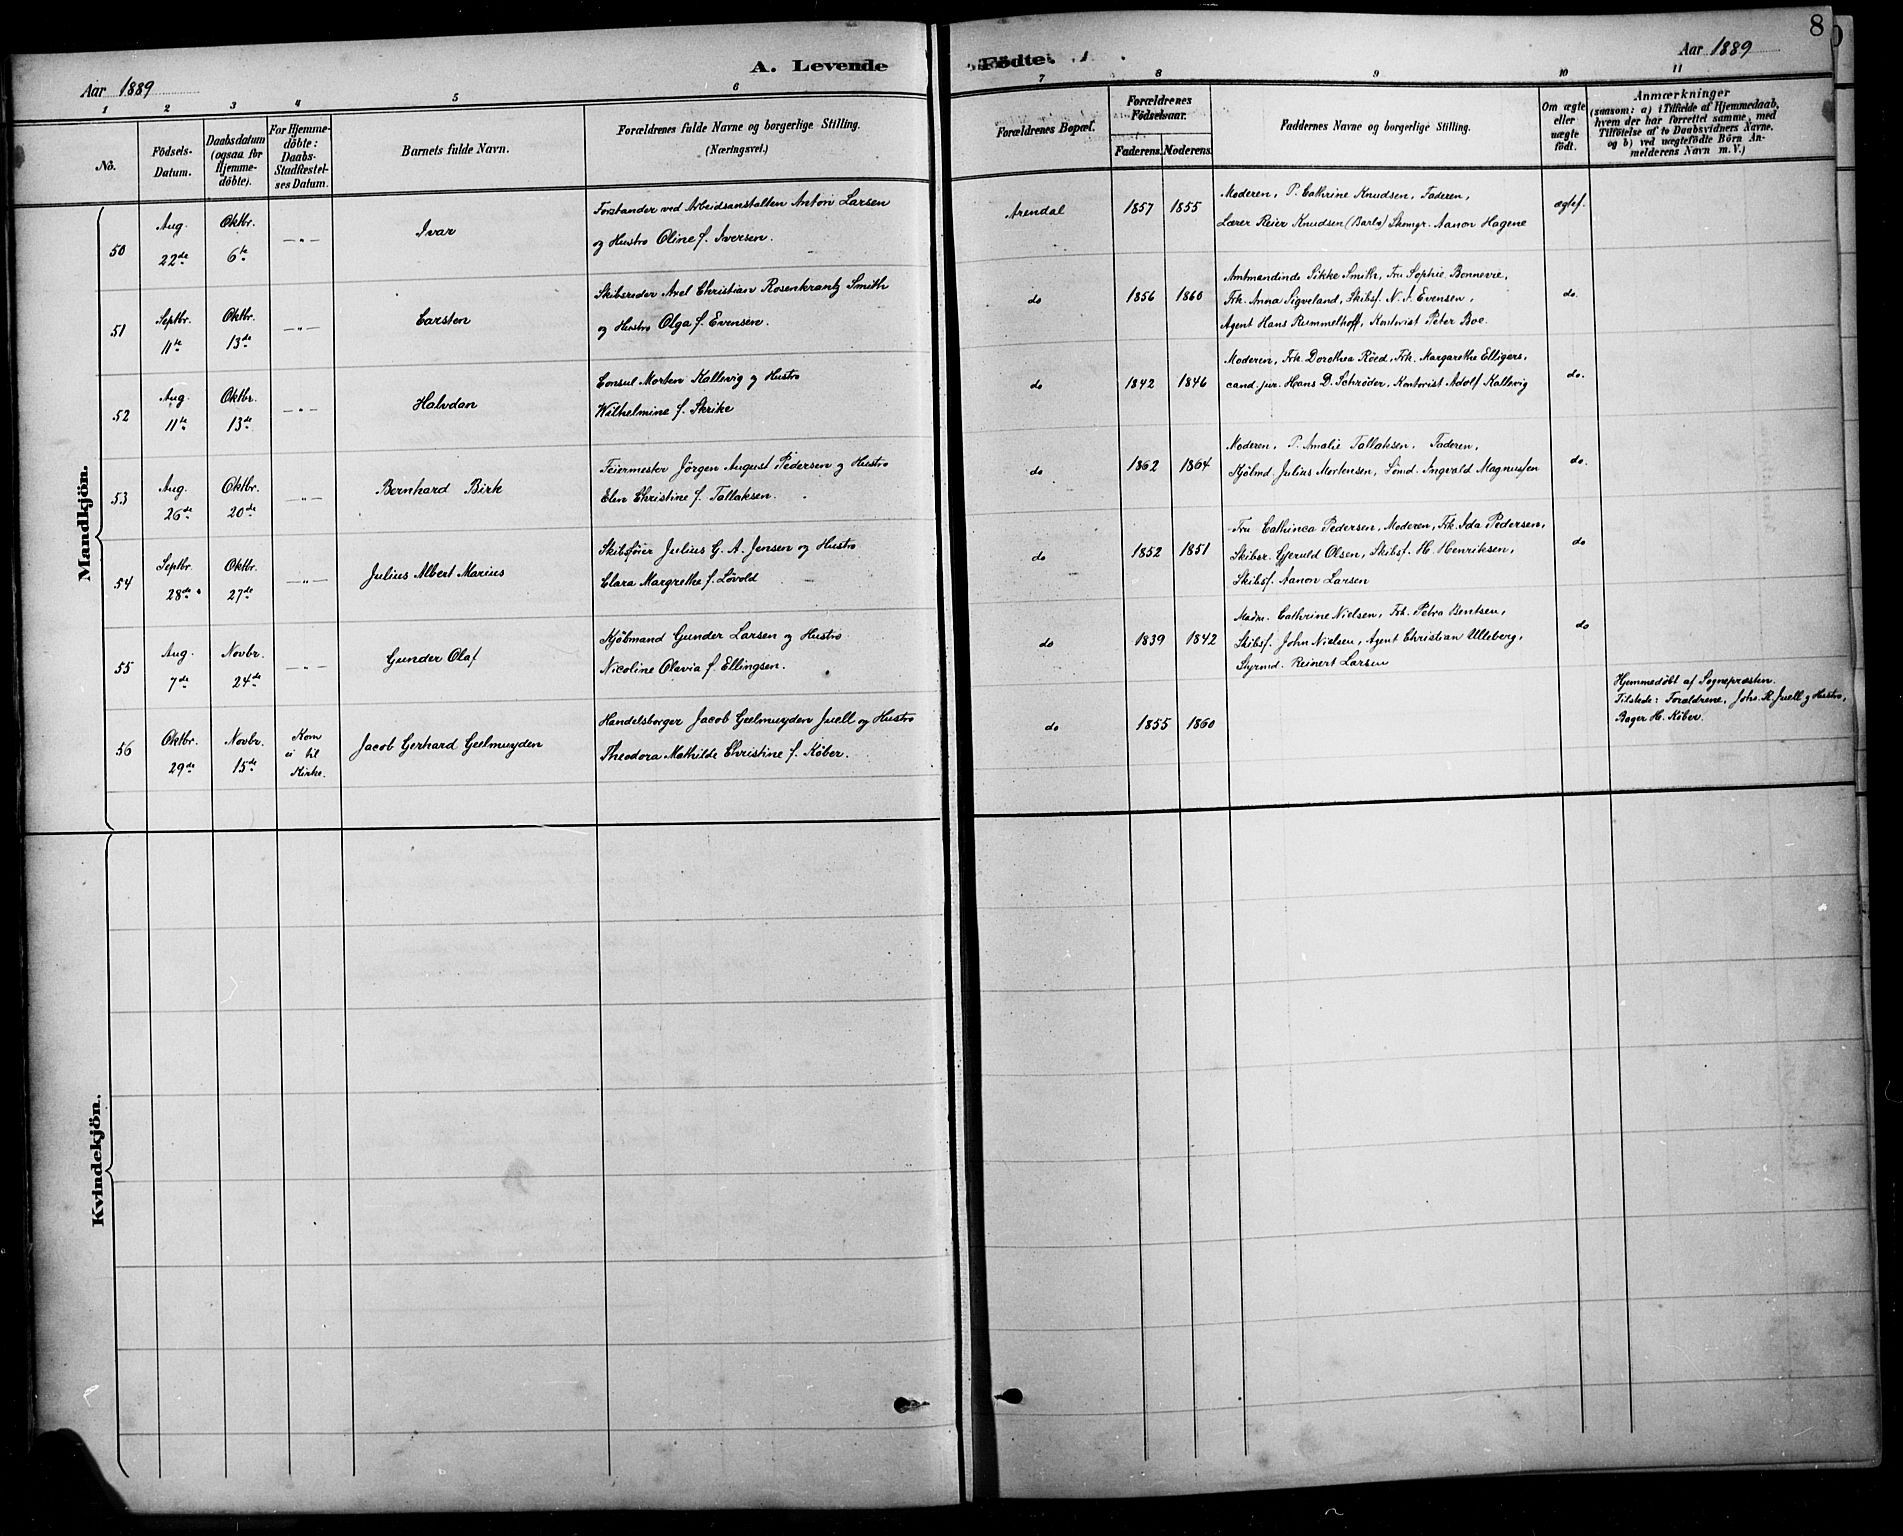 8
A. Levende Födte.
Aar 1889
Aar 1889
1 2 3 4 5 6 7 8 9 10 11
No.
Födsels-
Datum.
Daabsdatum
(ogsaa for
Hjemme-
döbte).
For Hjemme-
döbte:
Daabs-
Stadfæstel-
ses Datum.
Barnets fulde Navn.
Forældrenes fulde Navne og borgerlige Stilling.
(Næringsvei.)
Forældrenes Bopæl.
Forældrenes
Födselsaar.
Faderens. Moderens.
Faddernes Navne og borgerlige Stilling.
Om ægte
eller
uægte
födt.
Anmærkninger
(saasom: a) i Tilfælde af Hjemmedaab,
hvem der har forrettet samme, med
Tilföielse af to Daabsvidners Navne,
og b) ved uægtefödte Börn An-
melderens Navn m. V.)
Mandkjön.
50
Aug.
22de
Oktbr.
6te
—"—
Ivar
Forstander ved Arbeidsanstalten Anton Larsen
og Hustro Oline f. Iversen.
Arendal
1857 1855
Moderen, P. Cathrine Knudsen, Faderen,
Lærer Reier Knudsen (Barbo) Skomgr. Aanon Hagene
ægtef.
51
Septbr.
11te
Oktbr.
13de
—"—
Carsten
Skibsreder Axel Christian Rosenkrantz Smith
og Hustro Olga f. Evensen.
do
1856 1860
Amtmandinde Sikke Smith, Fru Sophie Bonnevie,
Frk. Anna Sigveland, Skibsf. N. J. Evensen,
Agent Hans Rummelhoff, Kontorist Peter Boe.
do.
52
Aug.
11te
Oktbr.
13de
—"—
Halvdan
Consul Morten Kallevig og Hustro
Wilhelmine f. Skrike
do
1842 1846
Moderen, Frk. Dorothea Röed, Frk. Margarethe Elligers,
cand. jur. Hans D. Schrøder, Kontorist Adolf Kallevig
do.
53
Aug.
26de
Oktbr.
20de
—"—
Bernhard Birk
Feiermester Jörgen August Pedersen og Hustro
Elen Christine f. Tallaksen.
do
1862 1864
Moderen, P. Amalie Tallaksen, Faderen,
Kjölmd. Julius Mortensen, Sömd. Ingvald Magnussen
do.
54
Septbr.
28de
Oktbr.
27de
—"—
Julius Albert Marius
Skibsfører Julius G. A. Jensen og Hustro
Clara Margrethe f. Løvold
do
1852 1851
Fru Cathinca Pedersen, Moderen, Frk. Ida Pedersen,
Skibsr. Gjeruld Olsen, Skibsf. H. Henriksen,
Skibsf. Aanon Larsen
do
55
Aug.
7de
Novbr.
24de
—"—
Gunder Olaf
Kjöbmand Gunder Larsen og Hustro
Nicoline Olavia f. Ellingsen.
do
1839 1842
Madm. Cathrine Nielsen, Frk. Petra Bentsen,
Skibsf. John Nielsen, Agent Christian Ulleberg,
Styrmd. Reinert Larsen
do
56
Oktbr.
29de
Novbr.
15de
Kom
ei til
Kirke.
Jacob Gerhard Geelmuyden
Handelsborger Jacob Geelmuyden Juell og Hustro
Theodora Mathilde Christine f. Köber.
do
1855 1860
Hjemmedöbt af Sognepræsten.
Tilstede: Forældrene, Johs. R. Juell og Hustro,
Bager H. Köber.
Kvindekjön.